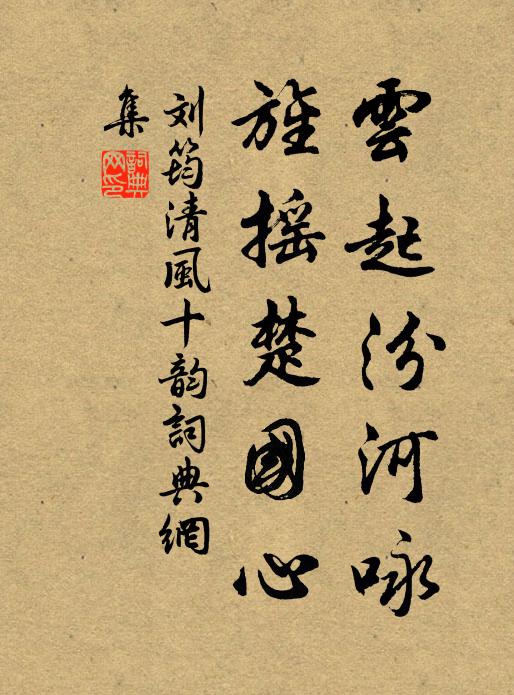 雲起汾河咏
旌摇楚國心
刘筠清風十韵詞典網
集
詞典
网印